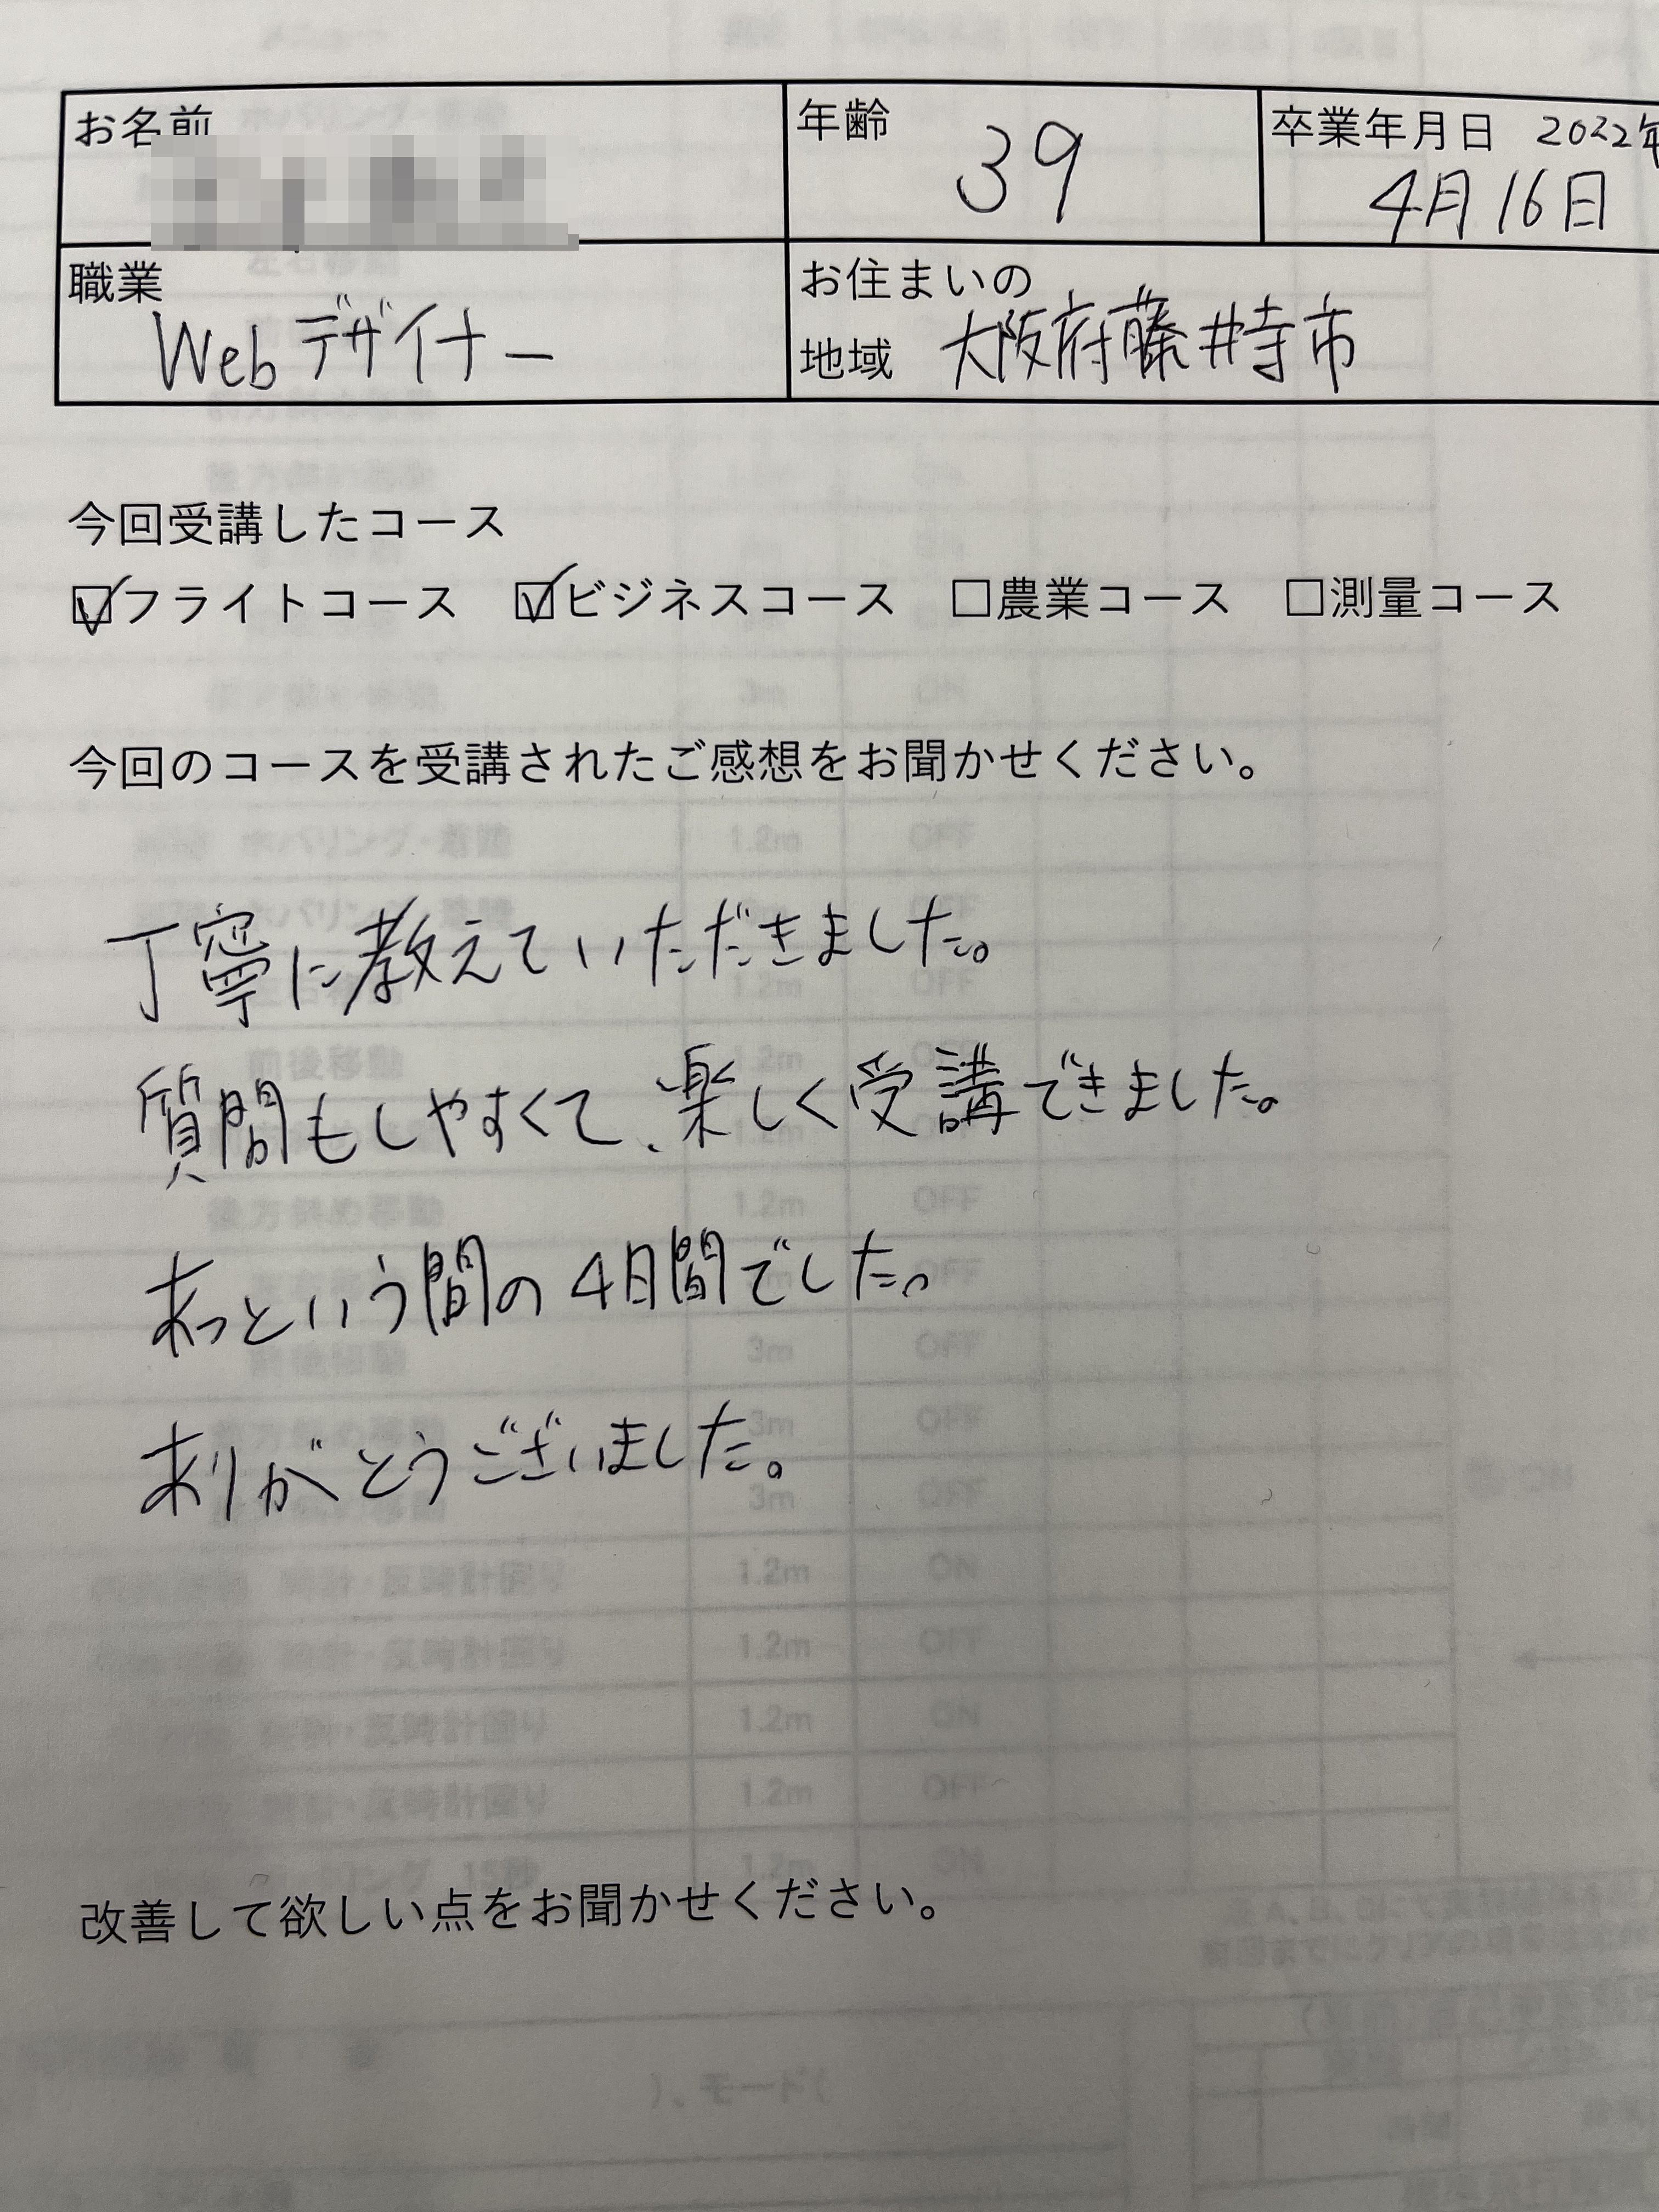 お名前
年齢 39
卒業年月日 2022年
4月16日
職業
Webデザイナー
お住まいの
地域 大阪府藤井寺市
今回受講したコース
☑フライトコース ☑ビジネスコース □農業コース □測量コース
今回のコースを受講されたご感想をお聞かせください。
丁寧に教えていただきました。
質問もしやすくて、楽しく受講できました。
あっという間の4日間でした。
ありがとうございました。
改善して欲しい点をお聞かせください。